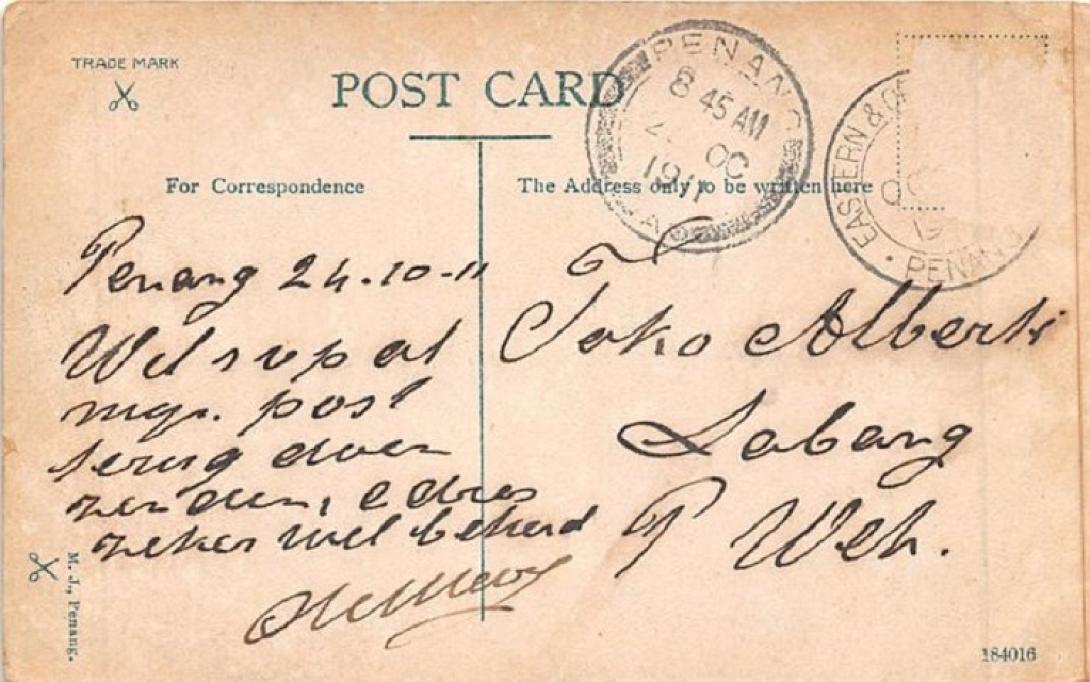 TRADE MARK
POST CARD
For Correspondence
The Address only to be written here
PENANG
8 45 AM
OC
1911
EASTERN & O
OC
19
PENANG
Penang 24-10-11
Wil s v p al
mijn post
terug doen
zenden, adres
zeker wel bekend
Toko Alberti
Sabang
P Weh.
M. J., Penang.
184016